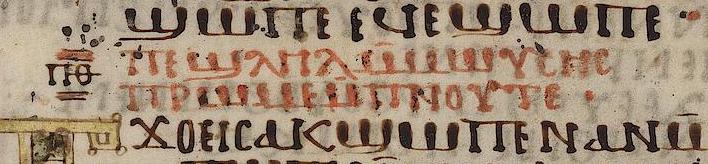 ϣⲱⲡⲉ ⲉϥⲉϣⲱⲡⲉ ·
ⲡⲑ ⲡⲉϣⲗⲏⲗ ⲙ̄ⲙⲱⲩⲥⲏⲥ
ⲡⲣⲱⲙⲉ ⲙ̄ⲡⲛⲟⲩⲧⲉ ·
ⲡϫⲟⲉⲓⲥ ⲁⲕϣⲱⲡⲉ ⲛⲁⲛ ⲙ̄